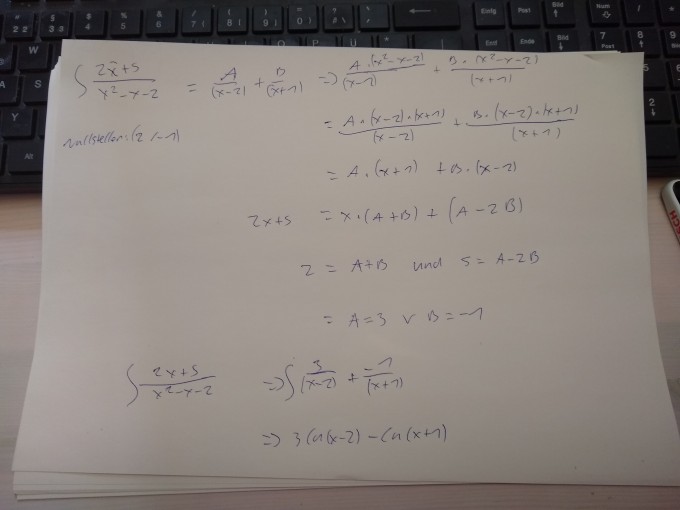 ∫ (2x+5)/(x²-x-2) = A/(x-2) + B/(x+1) => A·(x²-x-2)/(x-2) + B·(x²-x-2)/(x+1)
Nullstellen: (2 / -1)
= A·(x-2)·(x+1)/(x-2) + B·(x-2)·(x+1)/(x+1)
= A·(x+1) + B·(x-2)
2x+5 = x·(A+B) + (A-2B)
2 = A+B und 5 = A-2B
= A=3 v B=-1
∫ (2x+5)/(x²-x-2) => ∫ 3/(x-2) + -1/(x+1)
=> 3 ln(x-2) - ln(x+1)